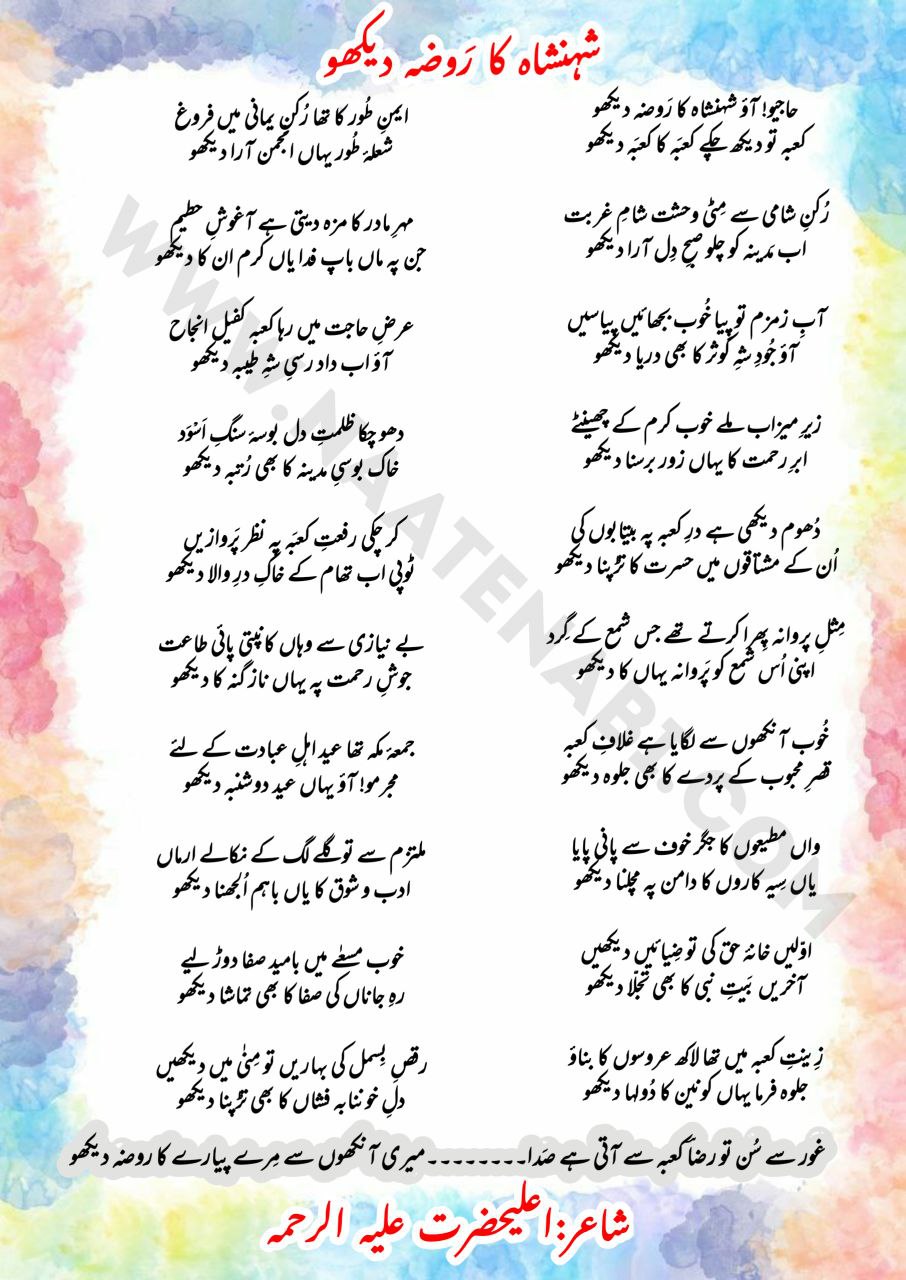 شہنشاہ کا رَوضہ دیکھو
حاجیو! آؤ شہنشاہ کا رَوضہ دیکھو
کعبہ تو دیکھ چکے کعبَہ کا کعبَہ دیکھو
رُکنِ شامی سے مِٹی وحشت شامِ غربت
اب مَدینہ کو چلو صبحِ دِل آرا دیکھو
آبِ زمزم تو پیا خُوب بجھائیں پیاسیں
آؤ جُودِ شہِ کوثر کا بھی دریا دیکھو
زیرِ میزاب ملے خوب کرم کے چھینٹے
ابرِ رحمت کا یہاں زور برسنا دیکھو
دُھوم دیکھی ہے درِ کعبہ پہ بیتابوں کی
اُن کے مشتاقوں میں حسرت کا تڑپنا دیکھو
مِثلِ پروانہ پِھرا کرتے تھے جس شمع کے گِرد
اپنی اُس شمع کو پَروانہ یہاں کا دیکھو
خُوب آنکھوں سے لگایا ہے غلافِ کعبہ
قصرِ محبوب کے پردے کا بھی جلوہ دیکھو
واں مطیعوں کا جگر خوف سے پانی پایا
یاں سِیہ کاروں کا دامن پہ مچلنا دیکھو
اوّلیں خانۂ حق کی تو ضِیائیں دیکھیں
آخریں بَیتِ نبی کا بھی تجلّا دیکھو
زِینتِ کعبہ میں تھا لاکھ عروسوں کا بناؤ
جلوہ فرما یہاں کونین کا دُولہا دیکھو
ایمنِ طُور کا تھا رُکنِ یمانی میں فروغ
شعلۂ طُور یہاں انجمن آرا دیکھو
مہرِ مادر کا مزہ دیتی ہے آغوشِ حطیم
جن پہ ماں باپ فدا یاں کرم ان کا دیکھو
عرضِ حاجت میں رہا کعبہ کفیل انجاح
آؤ اب داد رسیِ شہِ طیبہ دیکھو
دھو چکا ظلمتِ دل بوسۂ سنگِ اَسْوَد
خاک بوسیِ مدینہ کا بھی رُتبہ دیکھو
کر چکی رفعتِ کعبَہ پہ نظر پَروازیں
ٹوپی اب تھام کے خاکِ درِ والا دیکھو
بے نیازی سے وہاں کانپتی پائی طاعت
جوشِ رحمت پہ یہاں ناز گنہ کا دیکھو
جمعۂ مکہ تھا عید اہلِ عبادت کے لئے
مجرمو! آؤ یہاں عید دوشنبہ دیکھو
ملتزم سے تو گلے لگ کے نکالے ارماں
ادب و شوق کا یاں باہم اُلجھنا دیکھو
خوب مسعےٰ میں بامید صفا دوڑ لیے
رہِ جاناں کی صفا کا بھی تماشا دیکھو
رقصِ بِسمل کی بہاریں تو مِنیٰ میں دیکھیں
دلِ خوننابہ فشاں کا بھی تڑپنا دیکھو
غور سے سُن تو رضا کعبہ سے آتی ہے صَدا۔۔۔۔۔۔۔۔میری آنکھوں سے مِرے پیارے کا روضہ دیکھو
شاعر:اعلیٰحضرت علیہ الرحمہ
WWW.NAATENABI.COM